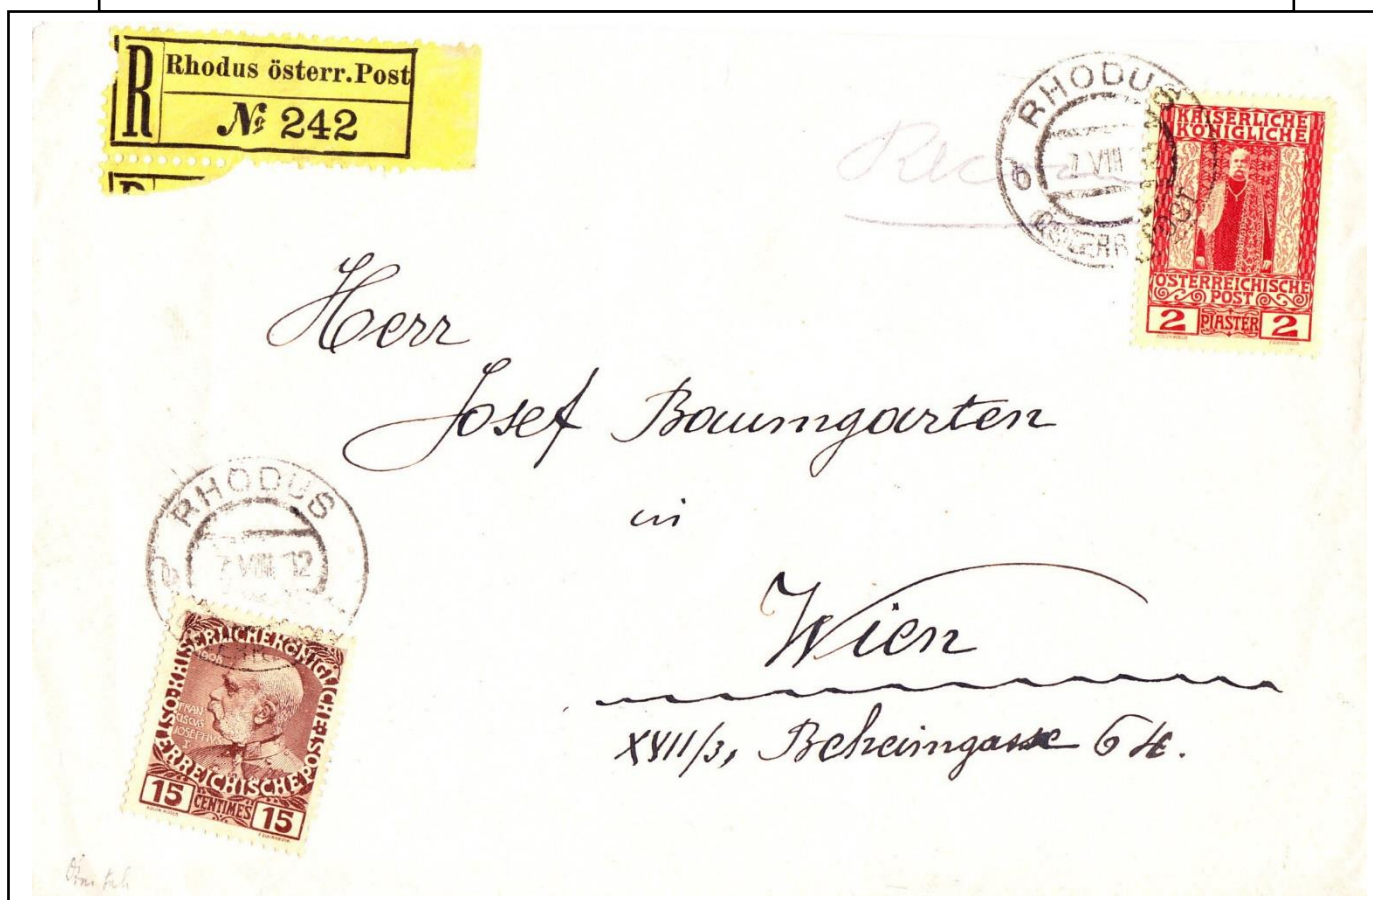 R Rhodus österr. Post
№ 242
R
RHODUS
7 VIII
ÖSTERR
POST
KAISERLICHE
KÖNIGLICHE
ÖSTERREICHISCHE
POST
2 PIASTER 2
Herr
Josef Baumgarten
in
Wien
XVII/3, Beheimgasse 64.
RHODUS
7 VIII 12
KAISERLICHE KÖNIGLICHE ÖSTERREICHISCHE POST
1908
FRAN
CISCUS
IOSEPHUS
I
15 CENTIMES 15